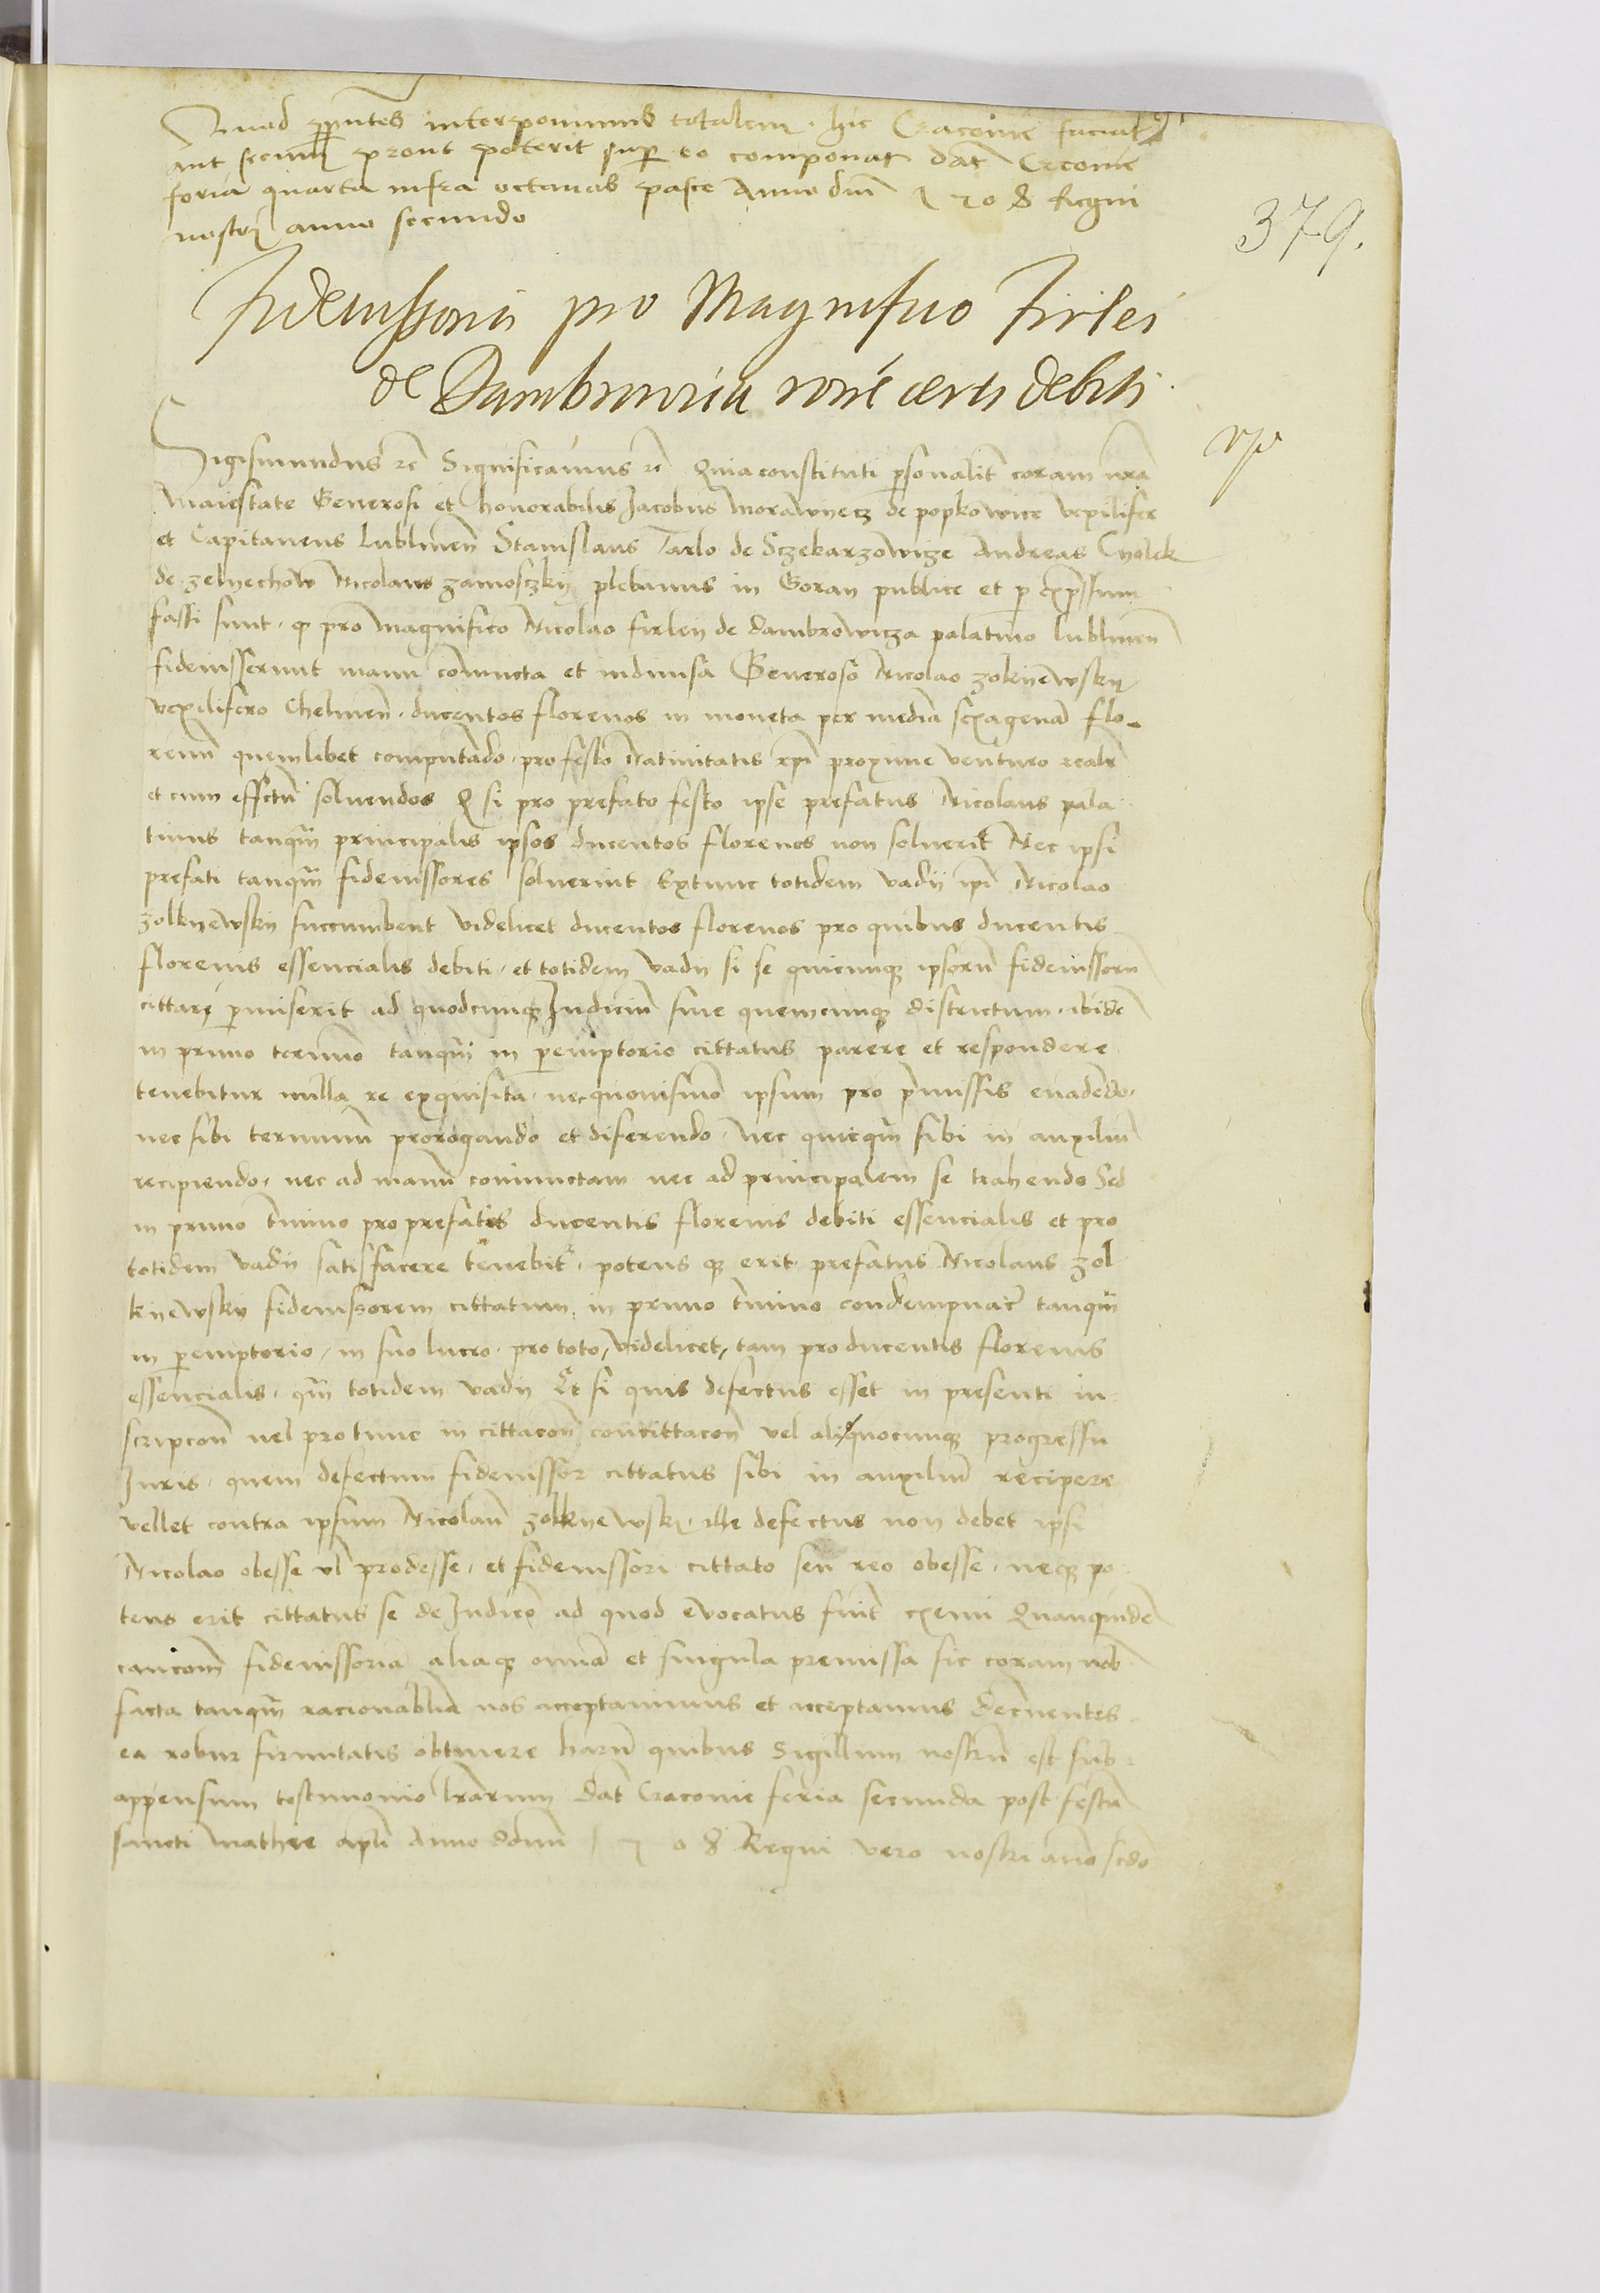 Quod presentes interponimus totalem hic Cracovie faciat
aut secum prout poterit super eo componat dat Crcovie
feria quarta infra octavas pasce Anno dni 1508 Regni
nostri anno secundo
379.
Fideiussoria pro Magnifico Firlei
de Dambrovicza certi debiti
Sigismundus etc Significamus etc Quia constituti personalit coram nra
Maiestate Generosi et honorabilis Jacobus Morawyecz de popkowice vexilifer
et Capitaneus Lublinen Stanislaus Tarlo de Sczekarzowize Andreas Cyolek
de zelyechow Nicolaus zamosczky plebanus in Goray publice et p expressum
fassi sunt . q pro magnifico Nicolao firley de dambrowicza palatino lublinen
fideiusserunt manu coniuncta et indiuisa Generoso Nicolao zolkyewsky
vexilifero Chelmen . ducentos florenos in moneta per media sexagena flo-
renum quemlibet computando . pro festo Natiuitatis xpi proxime venturo realr
et cum effctu soluendos Q si pro prefato festo ipse prefatus Nicolaus pala
tinus tanqm principalis ipsos ducentos florenos non soluerit Nec ipsi
prefati tanqm fideiussores soluerint Extunc totidem vadii ipi Nicolao
zolkyewsky succumbent videlicet ducentos florenos pro quibus ducentis
florenis essencialis debiti . et totidem vadii si se quicunq ipsoru fideiussoru
cittare pmiserit ad quodcunq Judicium siue quemcunq districtum . ibide
in primo termino tanqm in peremptorio cittatus parere et respondere
tenebitur nulla re exquisita . nec quouismodo ipsum pro premissis euadendo .
nec sibi terminum prorogando et diferendo . nec quicqm sibi in auxiliu
recipiendo . nec ad manu coniunctam nec ad principalem se trahendo Sed
in primo tmino pro prefatis ducentis florenis debiti essencialis et pro
totidem vadii satisfacere tenebitr . potens q erit prefatus Nicolaus zol
kyewsky fideiussorem cittatum in primo tmino condempnare tanqm
in peremptorio / in suo lucro . pro toto / videlicet / tam pro ducentis florenis
essencialis . qm totidem vadii Et si quis defectus esset in presenti in
scripcon uel pro tunc in cittacon concittacon vel aliquocunq progressu
Juris . quem defectum fideiussor cittatus sibi in auxiliu recipere
vellet contra ipsum Nicolau zolkyewsky . ille defectus non debet ipsi
Nicolao obesse vl prodesse . et fideiussori cittato seu reo obesse . neq po
tens erit cittatus se de Judico ad quod evocatus fuit eximi Quamquide
caucom fideiussoria aliaq omia et singula premissa sic coram nob
facta tanqm racionabilia nos acceptauimus et acceptamus Decernentes
ea robur firmitatis obtinere haru quibus Sigillum nostru est sub
appensum testimonio lrarum dat Cracovie feria secunda post festu
sancti mathee apli Anno domi 1508 Regni vero nostri ano scdo